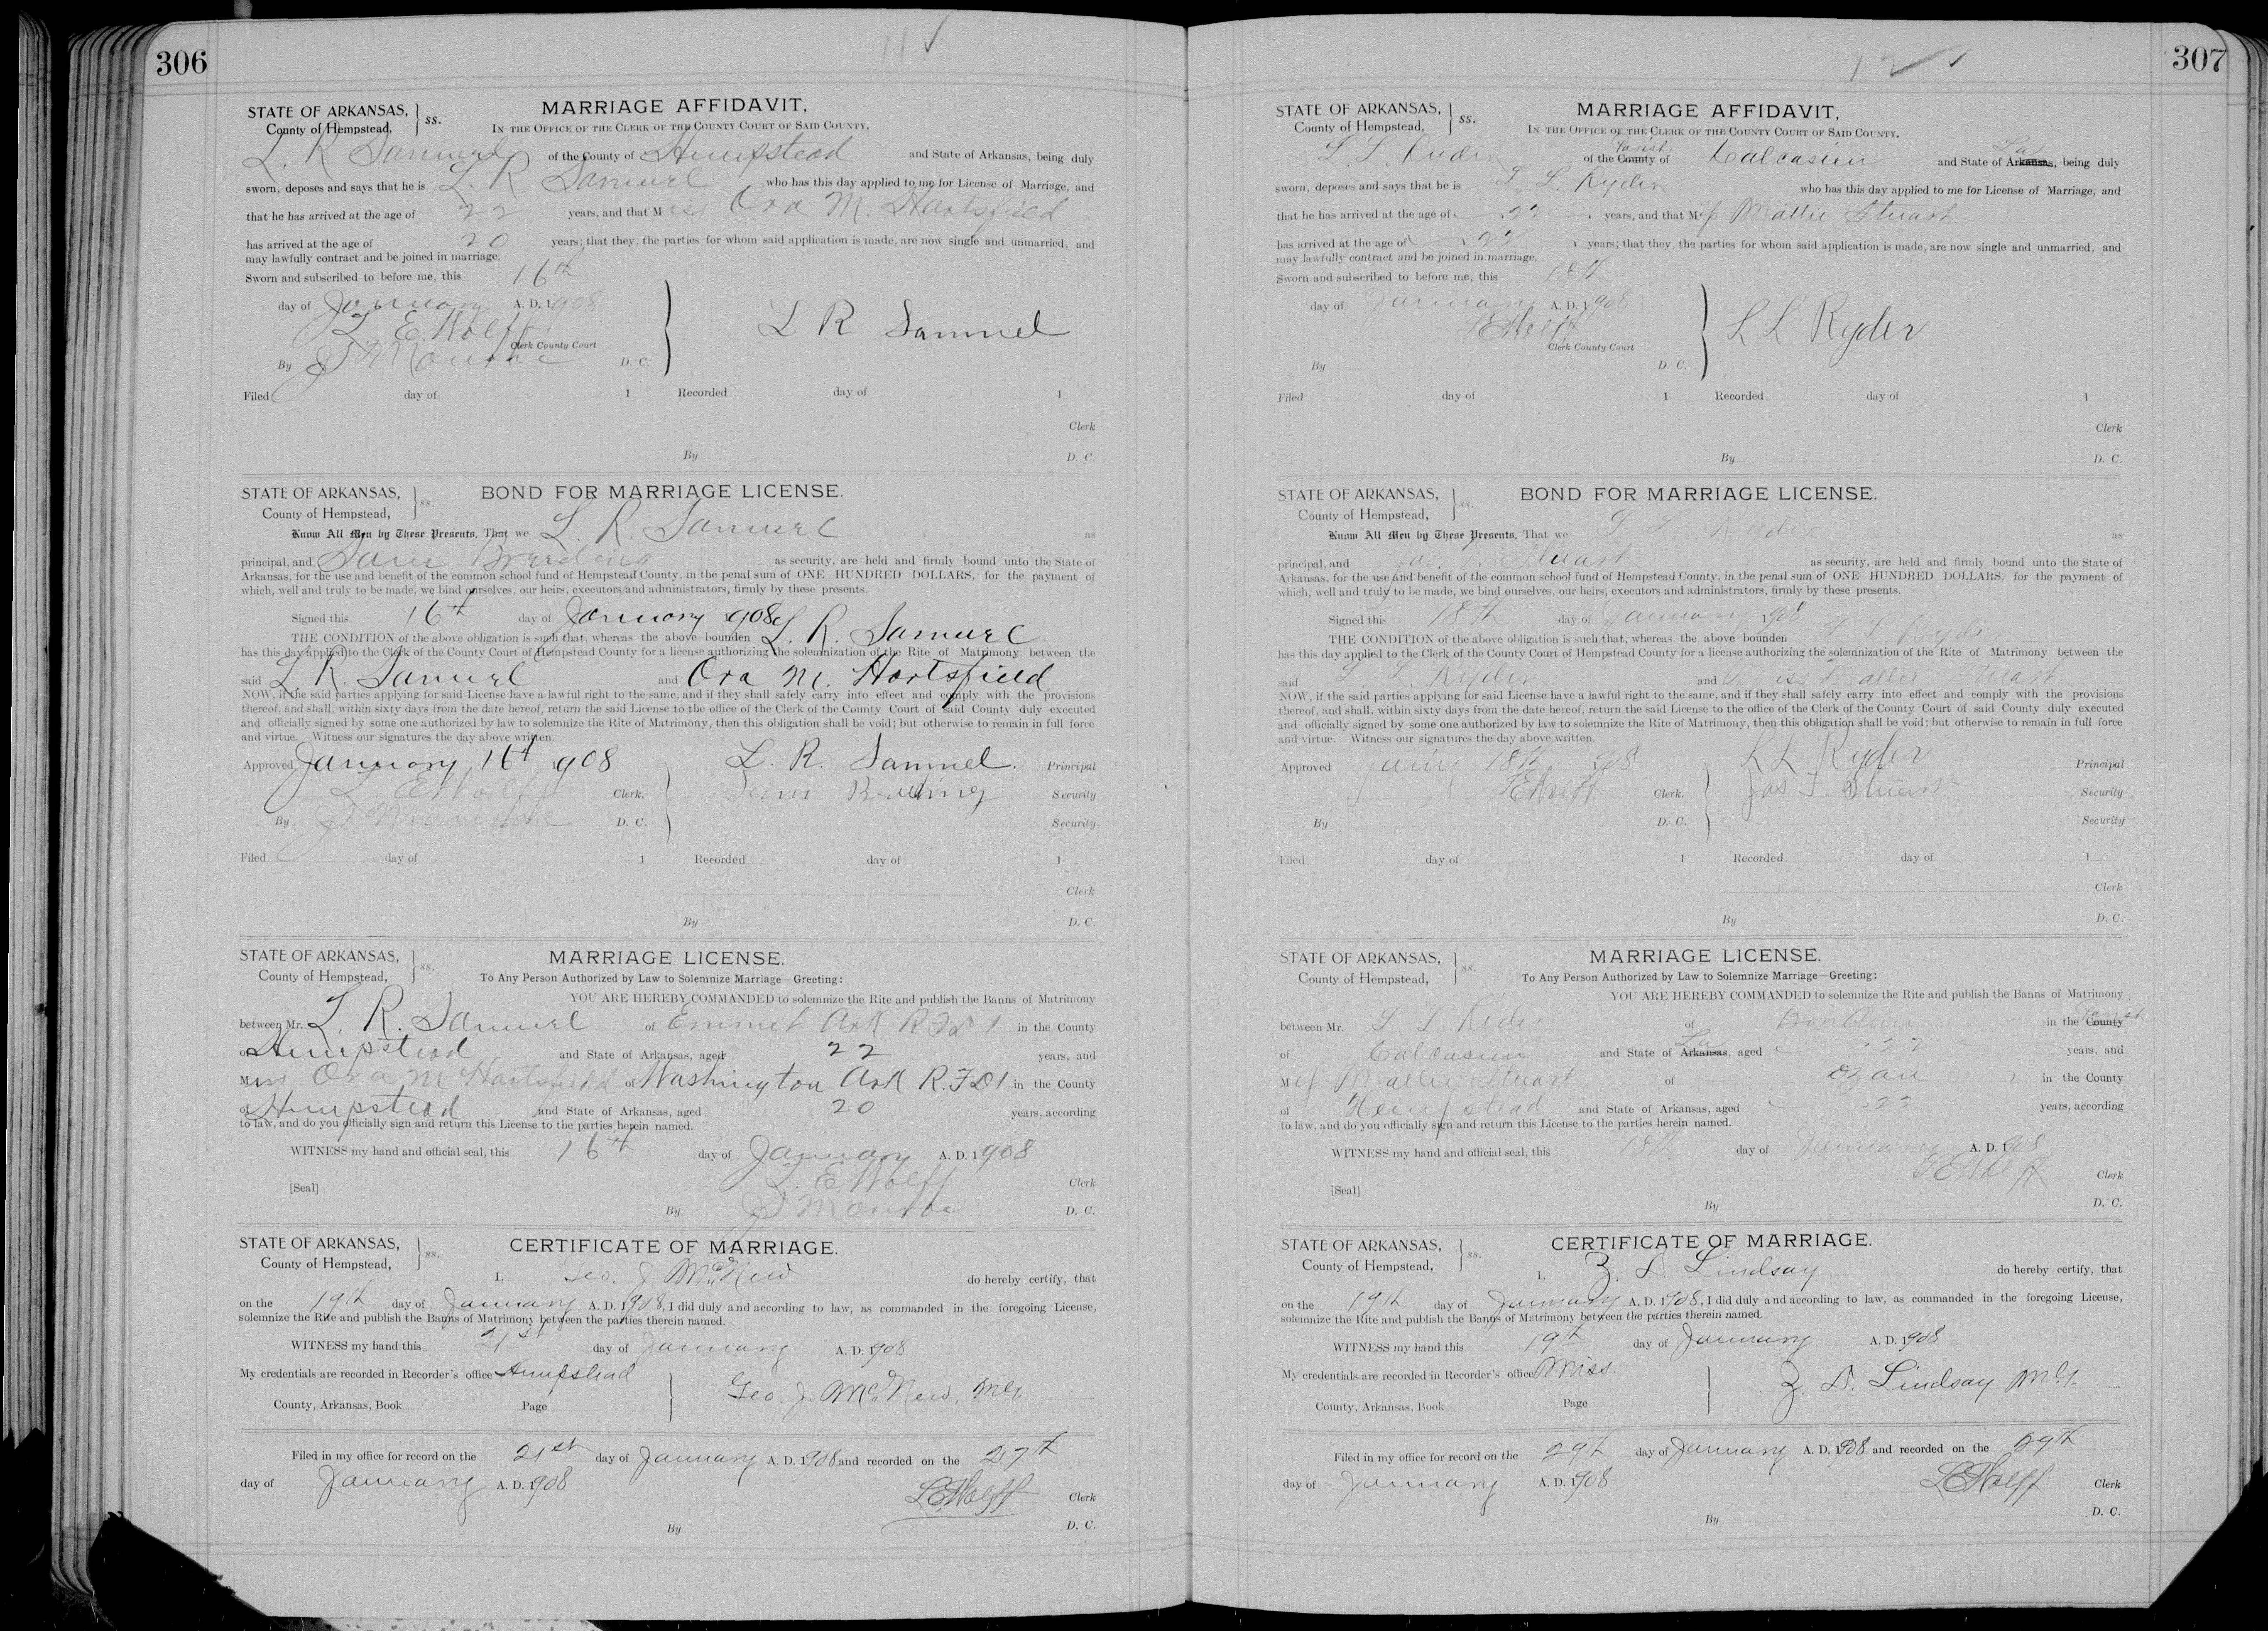 306
11 ✓
STATE OF ARKANSAS, } ss.
County of Hempstead,
MARRIAGE AFFIDAVIT,
IN THE OFFICE OF THE CLERK OF THE COUNTY COURT OF SAID COUNTY.
L. R Samuel of the County of Hempstead and State of Arkansas, being duly
sworn, deposes and says that he is L. R. Samuel who has this day applied to me for License of Marriage, and
that he has arrived at the age of 22 years, and that Miss Ora M. Hartsfield
has arrived at the age of 20 years; that they, the parties for whom said application is made, are now single and unmarried, and
may lawfully contract and be joined in marriage.
Sworn and subscribed to before me, this 16th
day of January A. D. 1908
L. E. Wolff
Clerk County Court
L R Samuel
By J Monroe D. C.
Filed day of 1 Recorded day of 1
Clerk
By D. C.
STATE OF ARKANSAS, } ss.
County of Hempstead,
BOND FOR MARRIAGE LICENSE.
Know All Men by These Presents, That we L. R. Samuel as
principal, and Sam as security, are held and firmly bound unto the State of
Arkansas, for the use and benefit of the common school fund of Hempstead County, in the penal sum of ONE HUNDRED DOLLARS, for the payment of
which, well and truly to be made, we bind ourselves, our heirs, executors and administrators, firmly by these presents.
Signed this 16th day of January 1908
THE CONDITION of the above obligation is such that, whereas the above bounden L. R. Samuel
has this day applied to the Clerk of the County Court of Hempstead County for a license authorizing the solemnization of the Rite of Matrimony between the
said L. R. Samuel and Ora M. Hartsfield
NOW, if the said parties applying for said License have a lawful right to the same, and if they shall safely carry into effect and comply with the provisions
thereof, and shall, within sixty days from the date hereof, return the said License to the office of the Clerk of the County Court of said County duly executed
and officially signed by some one authorized by law to solemnize the Rite of Matrimony, then this obligation shall be void; but otherwise to remain in full force
and virtue. Witness our signatures the day above written.
Approved January 16th 1908 L. R. Samuel. Principal
L. E. Wolff Clerk. Sam Security
By J Monroe D. C. Security
Filed day of 1 Recorded day of 1
Clerk
By D. C.
STATE OF ARKANSAS, } ss.
County of Hempstead,
MARRIAGE LICENSE.
To Any Person Authorized by Law to Solemnize Marriage—Greeting:
YOU ARE HEREBY COMMANDED to solemnize the Rite and publish the Banns of Matrimony
between Mr. L. R. Samuel of Emmet Ark R.F.D 1 in the County
of Hempstead and State of Arkansas, aged 22 years, and
Miss Ora M Hartsfield of Washington Ark R.F.D 1 in the County
of Hempstead and State of Arkansas, aged 20 years, according
to law, and do you officially sign and return this License to the parties herein named.
WITNESS my hand and official seal, this 16th day of January A. D. 1908
[Seal] L. E. Wolff Clerk
By J Monroe D. C.
STATE OF ARKANSAS, } ss.
County of Hempstead,
CERTIFICATE OF MARRIAGE.
I, Geo. J. McNew do hereby certify, that
on the 19th day of January A. D. 1908, I did duly and according to law, as commanded in the foregoing License,
solemnize the Rite and publish the Banns of Matrimony between the parties therein named.
WITNESS my hand this 21st day of January A. D. 1908
My credentials are recorded in Recorder's office Hempstead
Geo. J. McNew, M.G.
County, Arkansas, Book Page
Filed in my office for record on the 21st day of January A. D. 1908 and recorded on the 27th
day of January A. D. 1908
L E Wolff Clerk
By D. C.
307
12 ✓
STATE OF ARKANSAS, } ss.
County of Hempstead,
MARRIAGE AFFIDAVIT,
IN THE OFFICE OF THE CLERK OF THE COUNTY COURT OF SAID COUNTY.
L. L. Ryder of the County Parish of Calcasieu and State of Arkansas La, being duly
sworn, deposes and says that he is L L. Ryder who has this day applied to me for License of Marriage, and
that he has arrived at the age of 22 years, and that Miss Mattie Stuart
has arrived at the age of 22 years; that they, the parties for whom said application is made, are now single and unmarried, and
may lawfully contract and be joined in marriage.
Sworn and subscribed to before me, this 18th
day of January A. D. 1908
L E Wolff
Clerk County Court
L L Ryder
By D. C.
Filed day of 1 Recorded day of 1
Clerk
By D. C.
STATE OF ARKANSAS, } ss.
County of Hempstead,
BOND FOR MARRIAGE LICENSE.
Know All Men by These Presents, That we L L Ryder as
principal, and Jas. F. Stuart as security, are held and firmly bound unto the State of
Arkansas, for the use and benefit of the common school fund of Hempstead County, in the penal sum of ONE HUNDRED DOLLARS, for the payment of
which, well and truly to be made, we bind ourselves, our heirs, executors and administrators, firmly by these presents.
Signed this 18th day of January 1908
THE CONDITION of the above obligation is such that, whereas the above bounden L L Ryder
has this day applied to the Clerk of the County Court of Hempstead County for a license authorizing the solemnization of the Rite of Matrimony between the
said L. L. Ryder and Miss Mattie Stuart
NOW, if the said parties applying for said License have a lawful right to the same, and if they shall safely carry into effect and comply with the provisions
thereof, and shall, within sixty days from the date hereof, return the said License to the office of the Clerk of the County Court of said County duly executed
and officially signed by some one authorized by law to solemnize the Rite of Matrimony, then this obligation shall be void; but otherwise to remain in full force
and virtue. Witness our signatures the day above written.
Approved Jany 18th 1908 L L Ryder Principal
L E Wolff Clerk. Jas F Stuart Security
By D. C. Security
Filed day of 1 Recorded day of 1
Clerk
By D. C.
STATE OF ARKANSAS, } ss.
County of Hempstead,
MARRIAGE LICENSE.
To Any Person Authorized by Law to Solemnize Marriage—Greeting:
YOU ARE HEREBY COMMANDED to solemnize the Rite and publish the Banns of Matrimony
between Mr. L L Rider of Bon Ami in the County Parish
of Calcasieu and State of Arkansas La, aged 22 years, and
Miss Mattie Stuart of Ozan in the County
of Hempstead and State of Arkansas, aged 22 years, according
to law, and do you officially sign and return this License to the parties herein named.
WITNESS my hand and official seal, this 18th day of January A. D. 1908
[Seal] L E Wolff Clerk
By D. C.
STATE OF ARKANSAS, } ss.
County of Hempstead,
CERTIFICATE OF MARRIAGE.
I, Z. D. Lindsay do hereby certify, that
on the 19th day of January A. D. 1908, I did duly and according to law, as commanded in the foregoing License,
solemnize the Rite and publish the Banns of Matrimony between the parties therein named.
WITNESS my hand this 19th day of January A. D. 1908
My credentials are recorded in Recorder's office Miss.
Z. D. Lindsay M.G.
County, Arkansas, Book Page
Filed in my office for record on the 29th day of January A. D. 1908 and recorded on the 29th
day of January A. D. 1908
L E Wolff Clerk
By D. C.